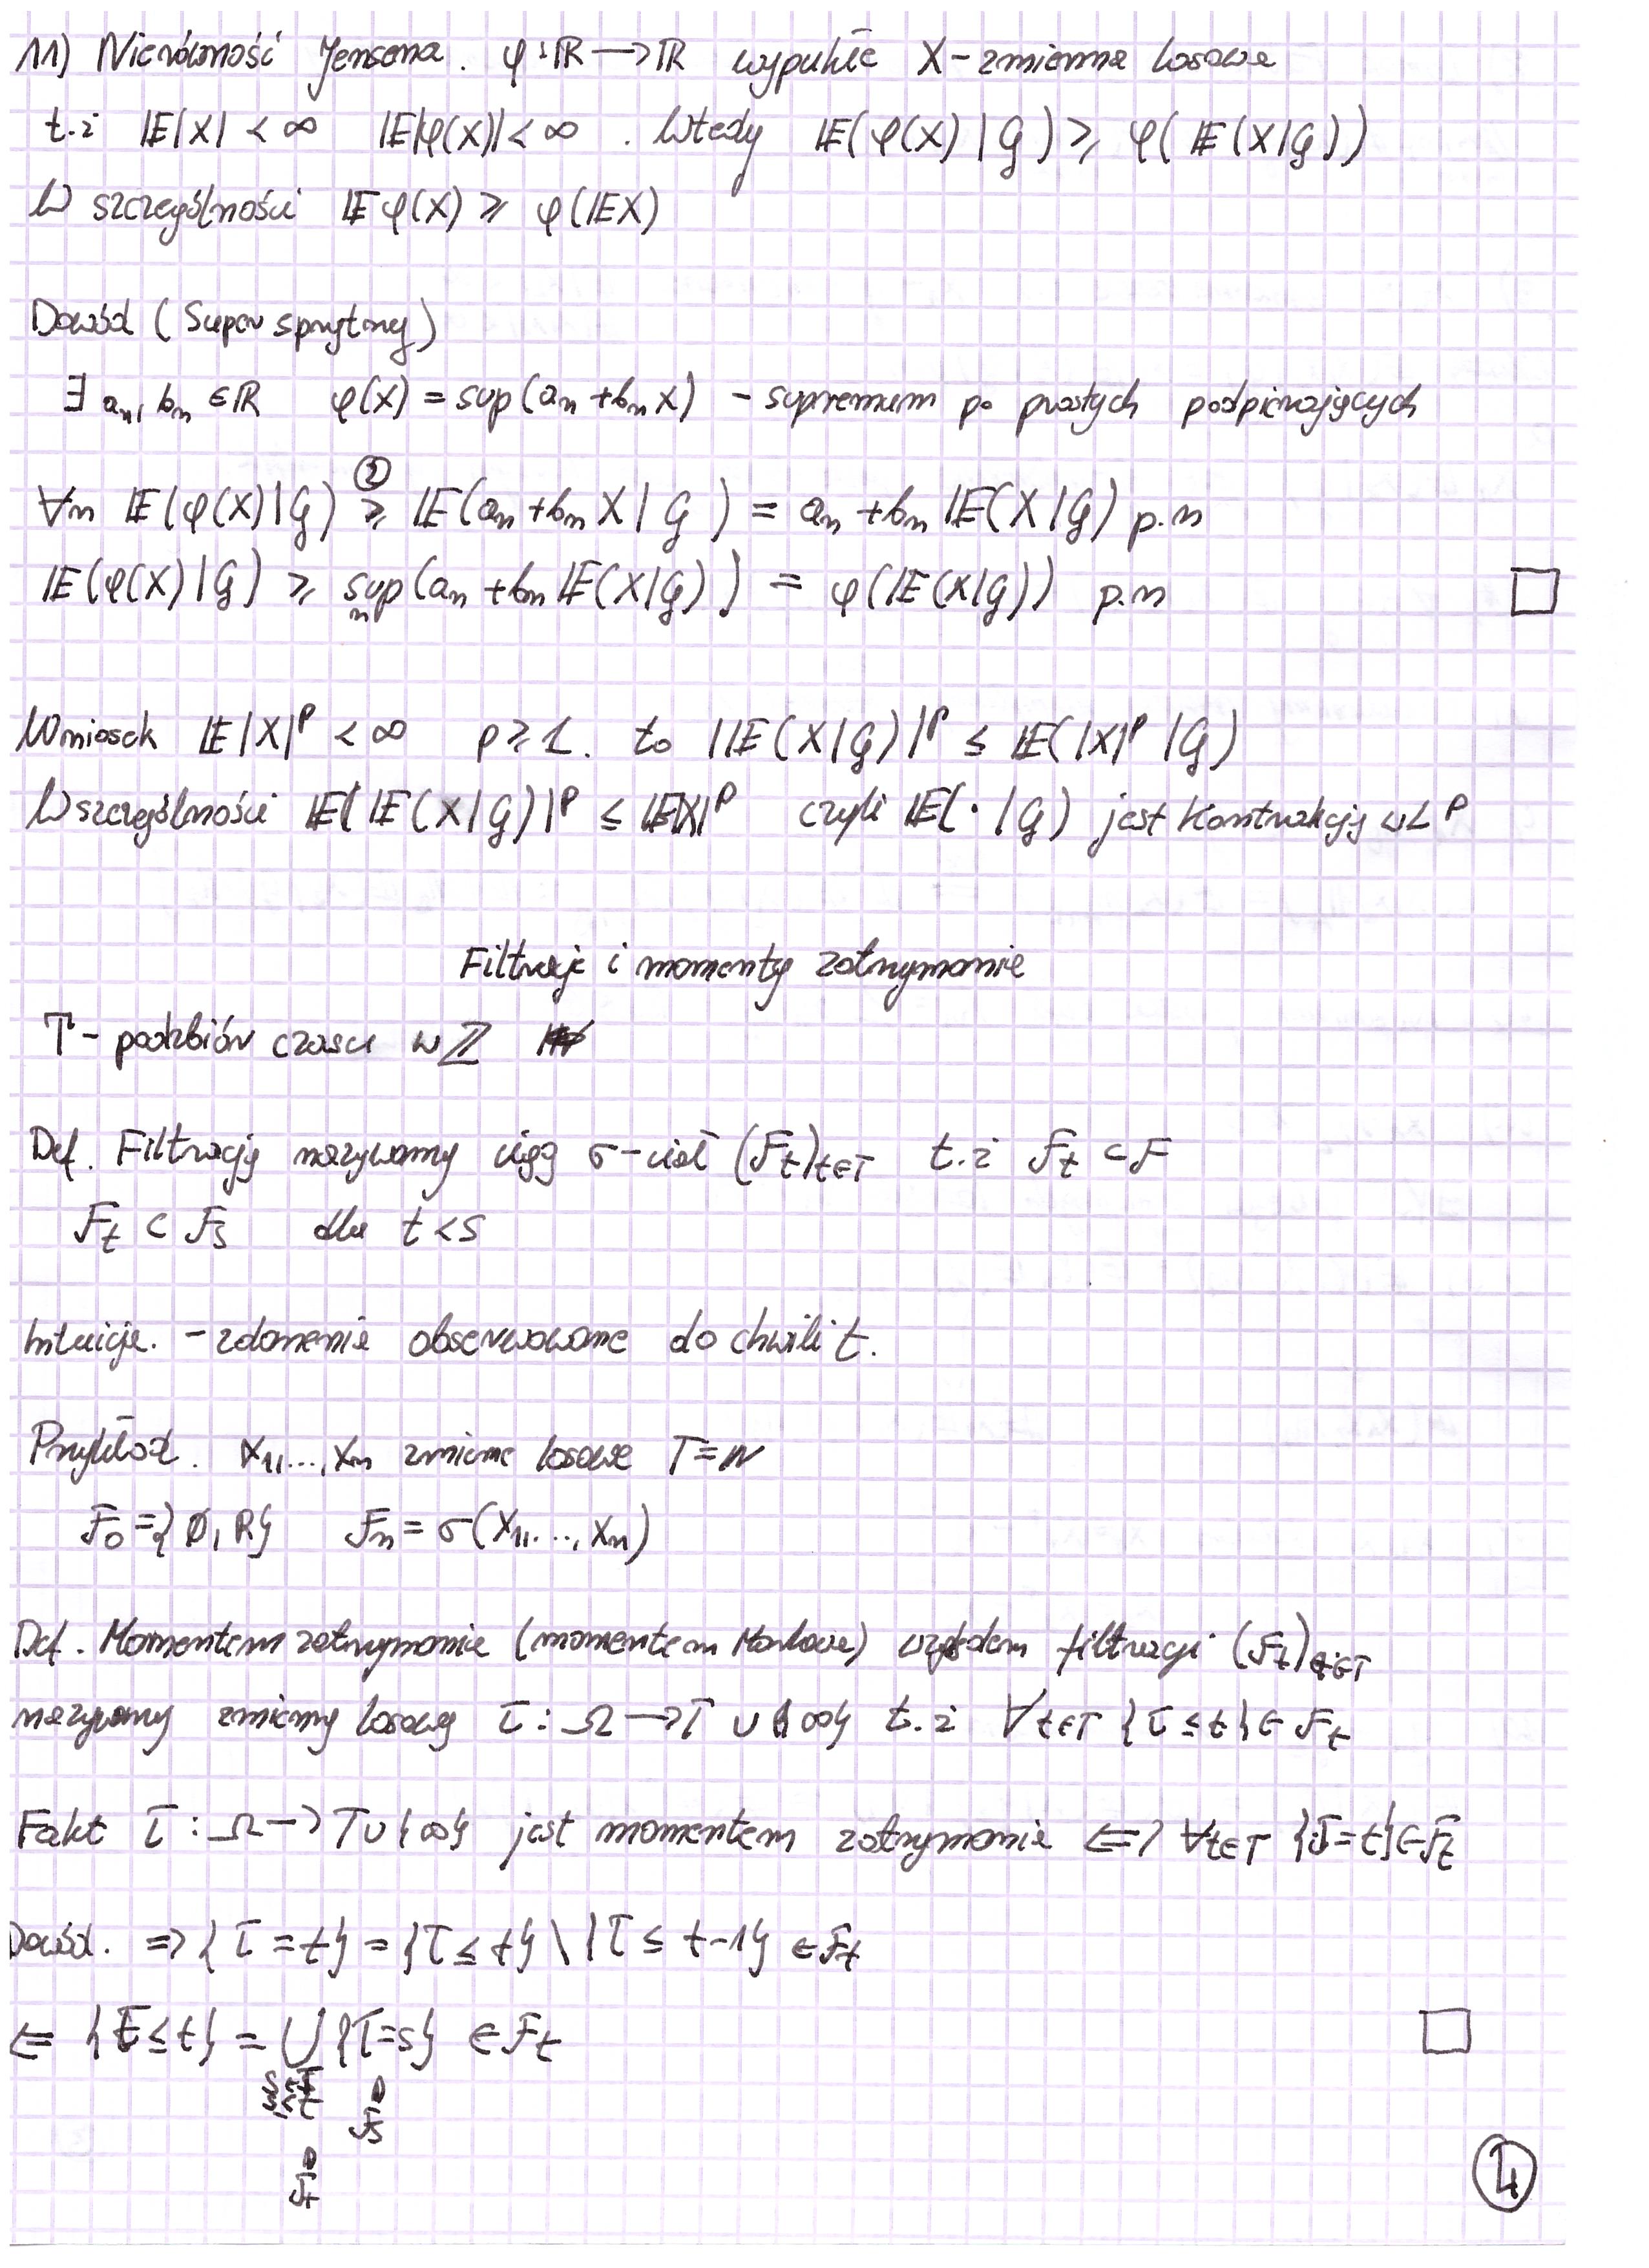 11) Nierówność Jensena. φ: ℝ → ℝ wypukła X - zmienna losowa
t.ż 𝔼|X| < ∞ 𝔼|φ(X)| < ∞ . Wtedy 𝔼(φ(X)|G) ≥ φ(𝔼(X|G))
W szczególności 𝔼φ(X) ≥ φ(𝔼X)
Dowód (Super sprytny)
∃ aₙ, bₙ ∈ ℝ φ(x) = sup(aₙ + bₙx) - supremum po prostych podpierających
∀n 𝔼(φ(X)|G) ≥ 𝔼(aₙ + bₙX|G) = aₙ + bₙ𝔼(X|G) p.n
②
𝔼(φ(X)|G) ≥ sup(aₙ + bₙ𝔼(X|G)) = φ(𝔼(X|G)) p.n □
n
Wniosek 𝔼|X|ᵖ < ∞ p ≥ 1. to |𝔼(X|G)|ᵖ ≤ 𝔼(|X|ᵖ|G)
W szczególności 𝔼|𝔼(X|G)|ᵖ ≤ 𝔼|X|ᵖ czyli 𝔼(·|G) jest kontrakcją w Lᵖ
Filtracje i momenty zatrzymania
T - podzbiór czasu w ℤ
Def. Filtracją nazywamy ciąg σ-ciał (Fₜ)ₜ∈T t.ż Fₜ ⊂ F
Fₜ ⊂ Fₛ dla t < s
Intuicja. - zdarzenia obserwowane do chwili t.
Przykład. X₁, ..., Xₙ zmienne losowe T = ℕ
F₀ = {∅, R} Fₙ = σ(X₁, ..., Xₙ)
Def. Momentem zatrzymania (momentem Markowa) względem filtracji (Fₜ)ₜ∈T
nazywamy zmienną losową τ: Ω → T ∪ {∞} t.ż ∀ₜ∈T {τ ≤ t} ∈ Fₜ
Fakt τ: Ω → T ∪ {∞} jest momentem zatrzymania ⇔ ∀ₜ∈T {τ = t} ∈ Fₜ
Dowód. ⇒ {τ = t} = {τ ≤ t} \ {τ ≤ t-1} ∈ Fₜ
⇐ {τ ≤ t} = ⋃ {τ = s} ∈ Fₜ □
s ≤ t
Fₛ
Fₜ
4